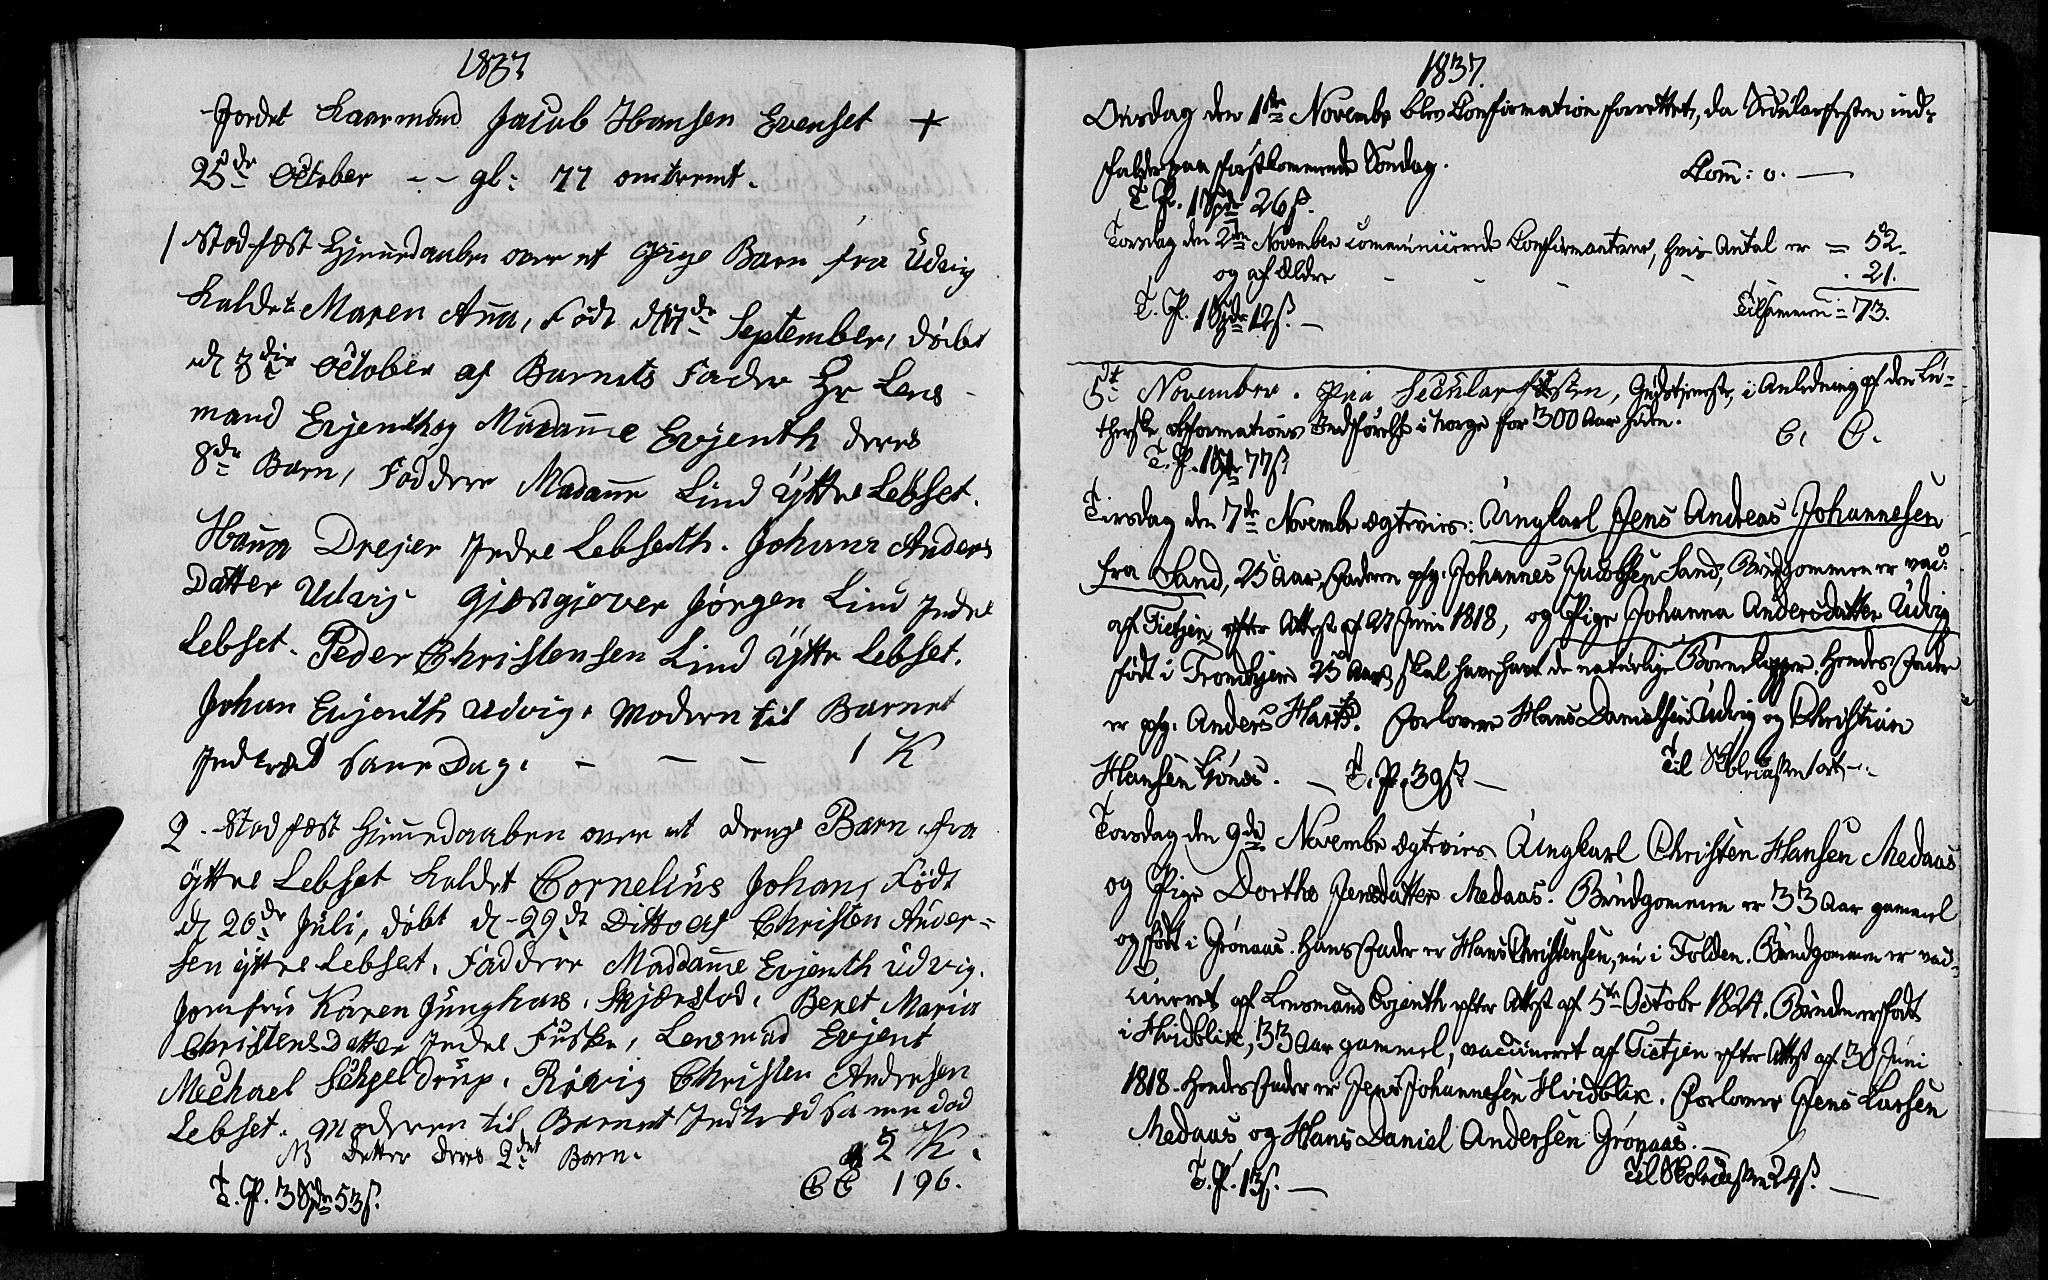 1837
Jordet Kaarmand Jacob Hansen Evenset +
25de October - - gl: 77 omtremt.
1 Stadfæst Hjemedaaben over et Pige Barn fra Udvig
Kaldet Maren Anna, Født d 17de September, døbt
d 3die October af Barnets Fader Hr Lens-
mand Evjenth og Madamme Evjenth deres
8de Barn, Faddere Madame Lind Yttre Lebset.
Hanna Drejer Indre Lebseth. Johana Anders
Datter Udvig Gjestgiever Jørgen Lind Indre
Lebset. Peder Christensen Lind Yttre Lebset.
Johan Evjenth Udvig. Modern til Barnet
Indtræd same Dag. - - - 1 K
2. Stadfæst Hjemedaaben over et drenge Barn, fra
Yttre Lebset Kaldet Cornelius Johan, Født
d 20de Juli, døbt d 29de Ditto af Christen Ander-
sen Yttre Lebset. Faddere Maddame Evjenth Udvig.
Jomfru Karen Junghans, Skjærstad. Beret Maria
Christens Datter Indre Fuske, Lensmad Evjent
Mechael Schjeldrup, Christen Andersen
Lebset. Moderen til Barnet Indtræd same dad
NB detter deres 2det Barn. 5 K.
T. P. 3 Spd 53 ß. C C 196.
1837.
Onsdag den 1ste Novembr blev Confirmation forrettet, da Secularfesten ind-
falder paa førstkommende Søndag. Com: 0. —
T. P. 1 Spd 26 ß.
Torsdag den 2den November communicerede Confirmanterne, hvis Antal er = 52.
og af Ældre - - - - 21.
T. P. 1 Spd 12 ß. — Tilsammen = 73.
5te November. Paa Secularfesten, Gudstjeneste, i Anledning af den Lu-
therske Reformations Indførelse i Norge for 300 Aar siden.
C. C.
T. P. 1 Spd 77 ß
Tirsdag den 7de Novembr ægtevies: Ungkarl Jens Andreas Johannesen
fra Sand, 25 Aar, Faderen Johannes Jacobsen Sand, Brudgommen er vac:
af Tietjen efter Attest af 27 Juni 1818, og Pige Johanna Andersdatter Udvig
født i Trondhjem 25 Aar, skal have havt de naturlige Børnekopper. Hendes Fader
er Anders Harts. Forlovere Hans Danielsen Udvig og Christian
Hansen Lønaas. — T. P. 39 ß — Til Skolecassen ort —
Torsdag den 9de Novembr ægtevies Ungkarl Christen Hansen Medaas
og Pige Dorthe Jensdatter Medaas. Brudgommen er 33 Aar gammel
og født i Grønaas. Hans Fader er Hans Christensen, nu i Folden. Brudgommen er vac-
cineret af Lensmand Evjenth efter Attest af 5te Octobr 1824. Bruden er født
i Hvidblik, 33 Aar gammel, vaccineret af Tietjen efter Attest af 30 Juni
1818. Hendes Fader er Jens Johannesen Hvidblik. Forlovere Jens Larsen
Medaas og Hans Daniel Andersen Grønaas. —
T. P. 13 ß. — Til Skolecassen 24 ß. —